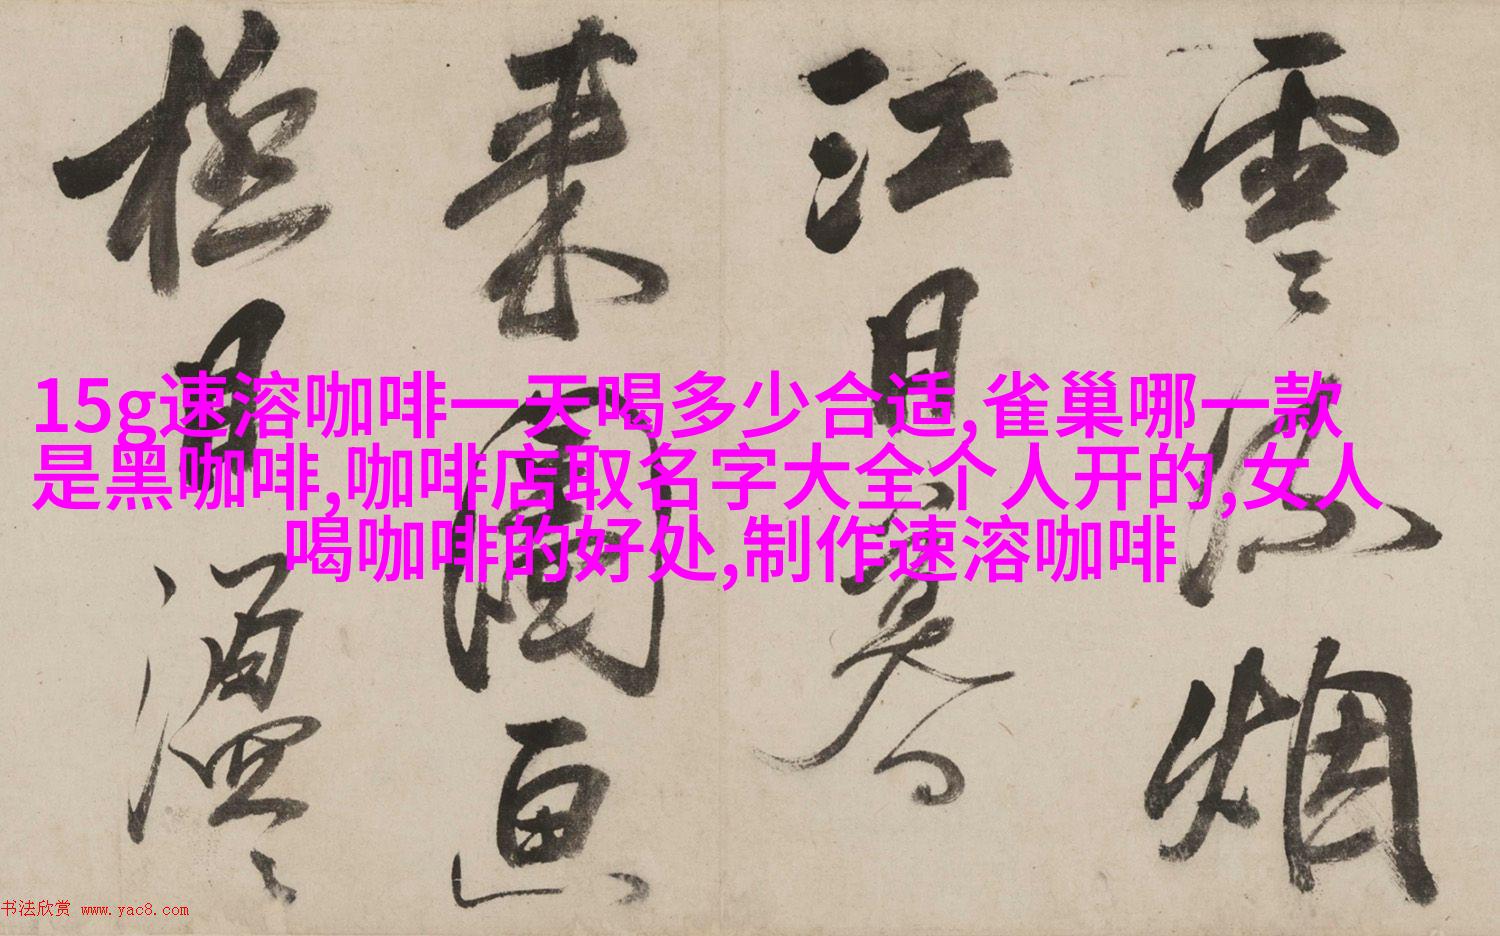 15g速溶咖啡一天喝多少合适,雀巢哪一款
是黑咖啡,咖啡店取名字大全个人开的,女人
喝咖啡的好处,制作速溶咖啡
雲〻烟
江月
来圖画
極目
书法欣赏 www.yac8.com